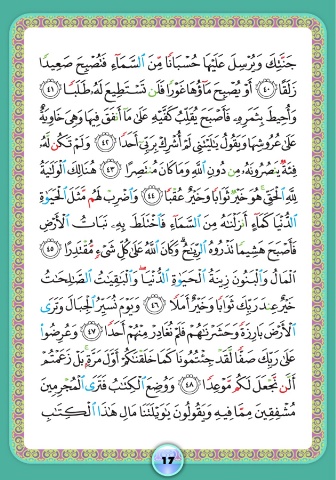 جَنَّتِكَ وَيُرْسِلَ عَلَيْهَا حُسْبَانًا مِّنَ السَّمَآءِ فَتُصْبِحَ صَعِيدًا
زَلَقًا ﴿٤٠﴾ أَوْ يُصْبِحَ مَآؤُهَا غَوْرًا فَلَن تَسْتَطِيعَ لَهُۥ طَلَبًا ﴿٤١﴾
وَأُحِيطَ بِثَمَرِهِۦ فَأَصْبَحَ يُقَلِّبُ كَفَّيْهِ عَلَىٰ مَآ أَنفَقَ فِيهَا وَهِىَ خَاوِيَةٌ
عَلَىٰ عُرُوشِهَا وَيَقُولُ يَـٰلَيْتَنِى لَمْ أُشْرِكْ بِرَبِّىٓ أَحَدًا ﴿٤٢﴾ وَلَمْ تَكُن لَّهُۥ
فِئَةٌ يَنصُرُونَهُۥ مِن دُونِ اللَّهِ وَمَا كَانَ مُنتَصِرًا ﴿٤٣﴾ هُنَالِكَ الْوَلَـٰيَةُ
لِلَّهِ الْحَقِّ هُوَ خَيْرٌ ثَوَابًا وَخَيْرٌ عُقْبًا ﴿٤٤﴾ وَاضْرِبْ لَهُم مَّثَلَ الْحَيَوٰةِ
الدُّنْيَا كَمَآءٍ أَنزَلْنَـٰهُ مِنَ السَّمَآءِ فَاخْتَلَطَ بِهِۦ نَبَاتُ الْأَرْضِ
فَأَصْبَحَ هَشِيمًا تَذْرُوهُ الرِّيَـٰحُ وَكَانَ اللَّهُ عَلَىٰ كُلِّ شَىْءٍ مُّقْتَدِرًا ﴿٤٥﴾
الْمَالُ وَالْبَنُونَ زِينَةُ الْحَيَوٰةِ الدُّنْيَا وَالْبَـٰقِيَـٰتُ الصَّـٰلِحَـٰتُ
خَيْرٌ عِندَ رَبِّكَ ثَوَابًا وَخَيْرٌ أَمَلًا ﴿٤٦﴾ وَيَوْمَ نُسَيِّرُ الْجِبَالَ وَتَرَى
الْأَرْضَ بَارِزَةً وَحَشَرْنَـٰهُمْ فَلَمْ نُغَادِرْ مِنْهُمْ أَحَدًا ﴿٤٧﴾ وَعُرِضُوا
عَلَىٰ رَبِّكَ صَفًّا لَّقَدْ جِئْتُمُونَا كَمَا خَلَقْنَـٰكُمْ أَوَّلَ مَرَّةٍ بَلْ زَعَمْتُمْ
أَلَّن نَّجْعَلَ لَكُم مَّوْعِدًا ﴿٤٨﴾ وَوُضِعَ الْكِتَـٰبُ فَتَرَى الْمُجْرِمِينَ
مُشْفِقِينَ مِمَّا فِيهِ وَيَقُولُونَ يَـٰوَيْلَتَنَا مَالِ هَـٰذَا الْكِتَـٰبِ
17